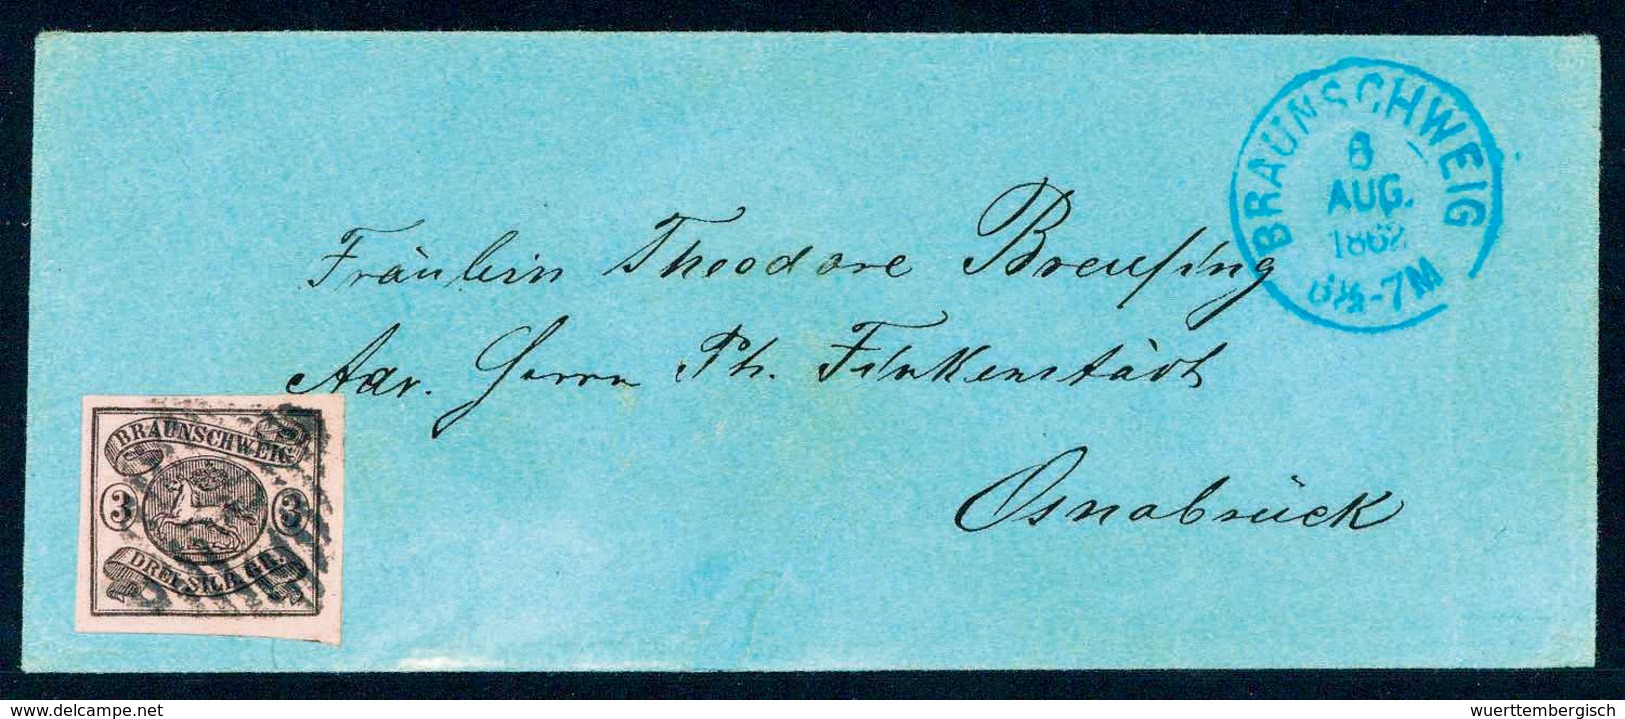 BRAUNSCHWEIG
6
AUG.
1862
6½-7M
Fräulein Theodore Breusing
Adr. Herrn Ph. Finkenstädt
Osnabrück
BRAUNSCHWEIG
3 3
DREI SILB. GR.
www.delcampe.net
wuerttembergisch